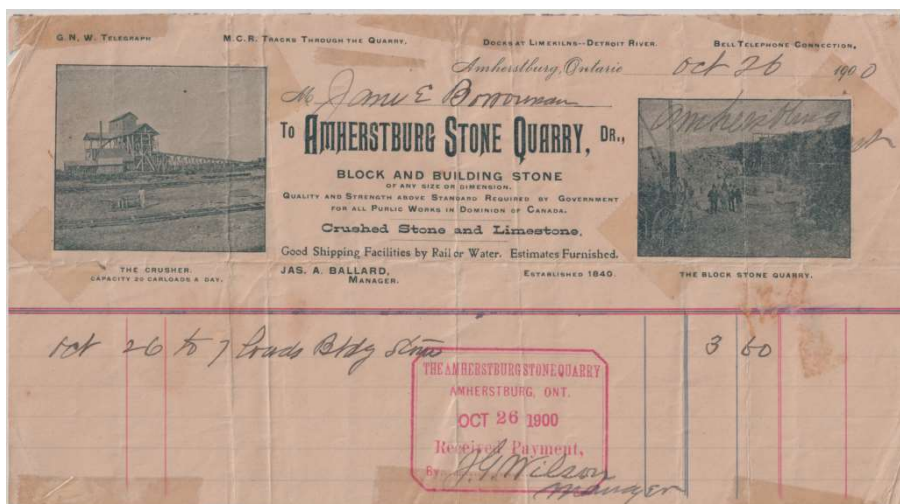 G. N. W. Telegraph
M.C.R. Tracks Through the Quarry.
Docks at Limekilns--Detroit River.
Bell Telephone Connection,
Amherstburg, Ontario Oct 26 1900
M James E
To Amherstburg Stone Quarry, Dr.,
BLOCK AND BUILDING STONE
OF ANY SIZE OR DIMENSION.
Quality and Strength above Standard Required by Government
for all Public Works in Dominion of Canada.
Crushed Stone and Limestone,
Good Shipping Facilities by Rail or Water. Estimates Furnished.
JAS. A. BALLARD,
Manager.
Established 1840
THE CRUSHER.
CAPACITY 20 CARLOADS A DAY.
Amherstburg
THE BLOCK STONE QUARRY.
Oct 26 to 7 loads Bldg Stone 3 50
THE AMHERSTBURG STONE QUARRY
AMHERSTBURG, ONT.
OCT 26 1900
Received Payment,
By J G Wilson
Manager